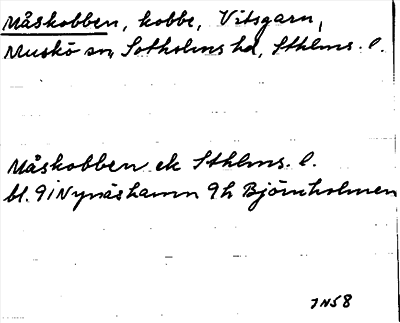 Måskobben, kobbe, Vitsgarn,
Muskö sn, Sotholms hd, Sthlms. l.
Måskobben ek Sthlms. l.
bl. 9 i Nynäshamn 9h Björnholmen
JN58